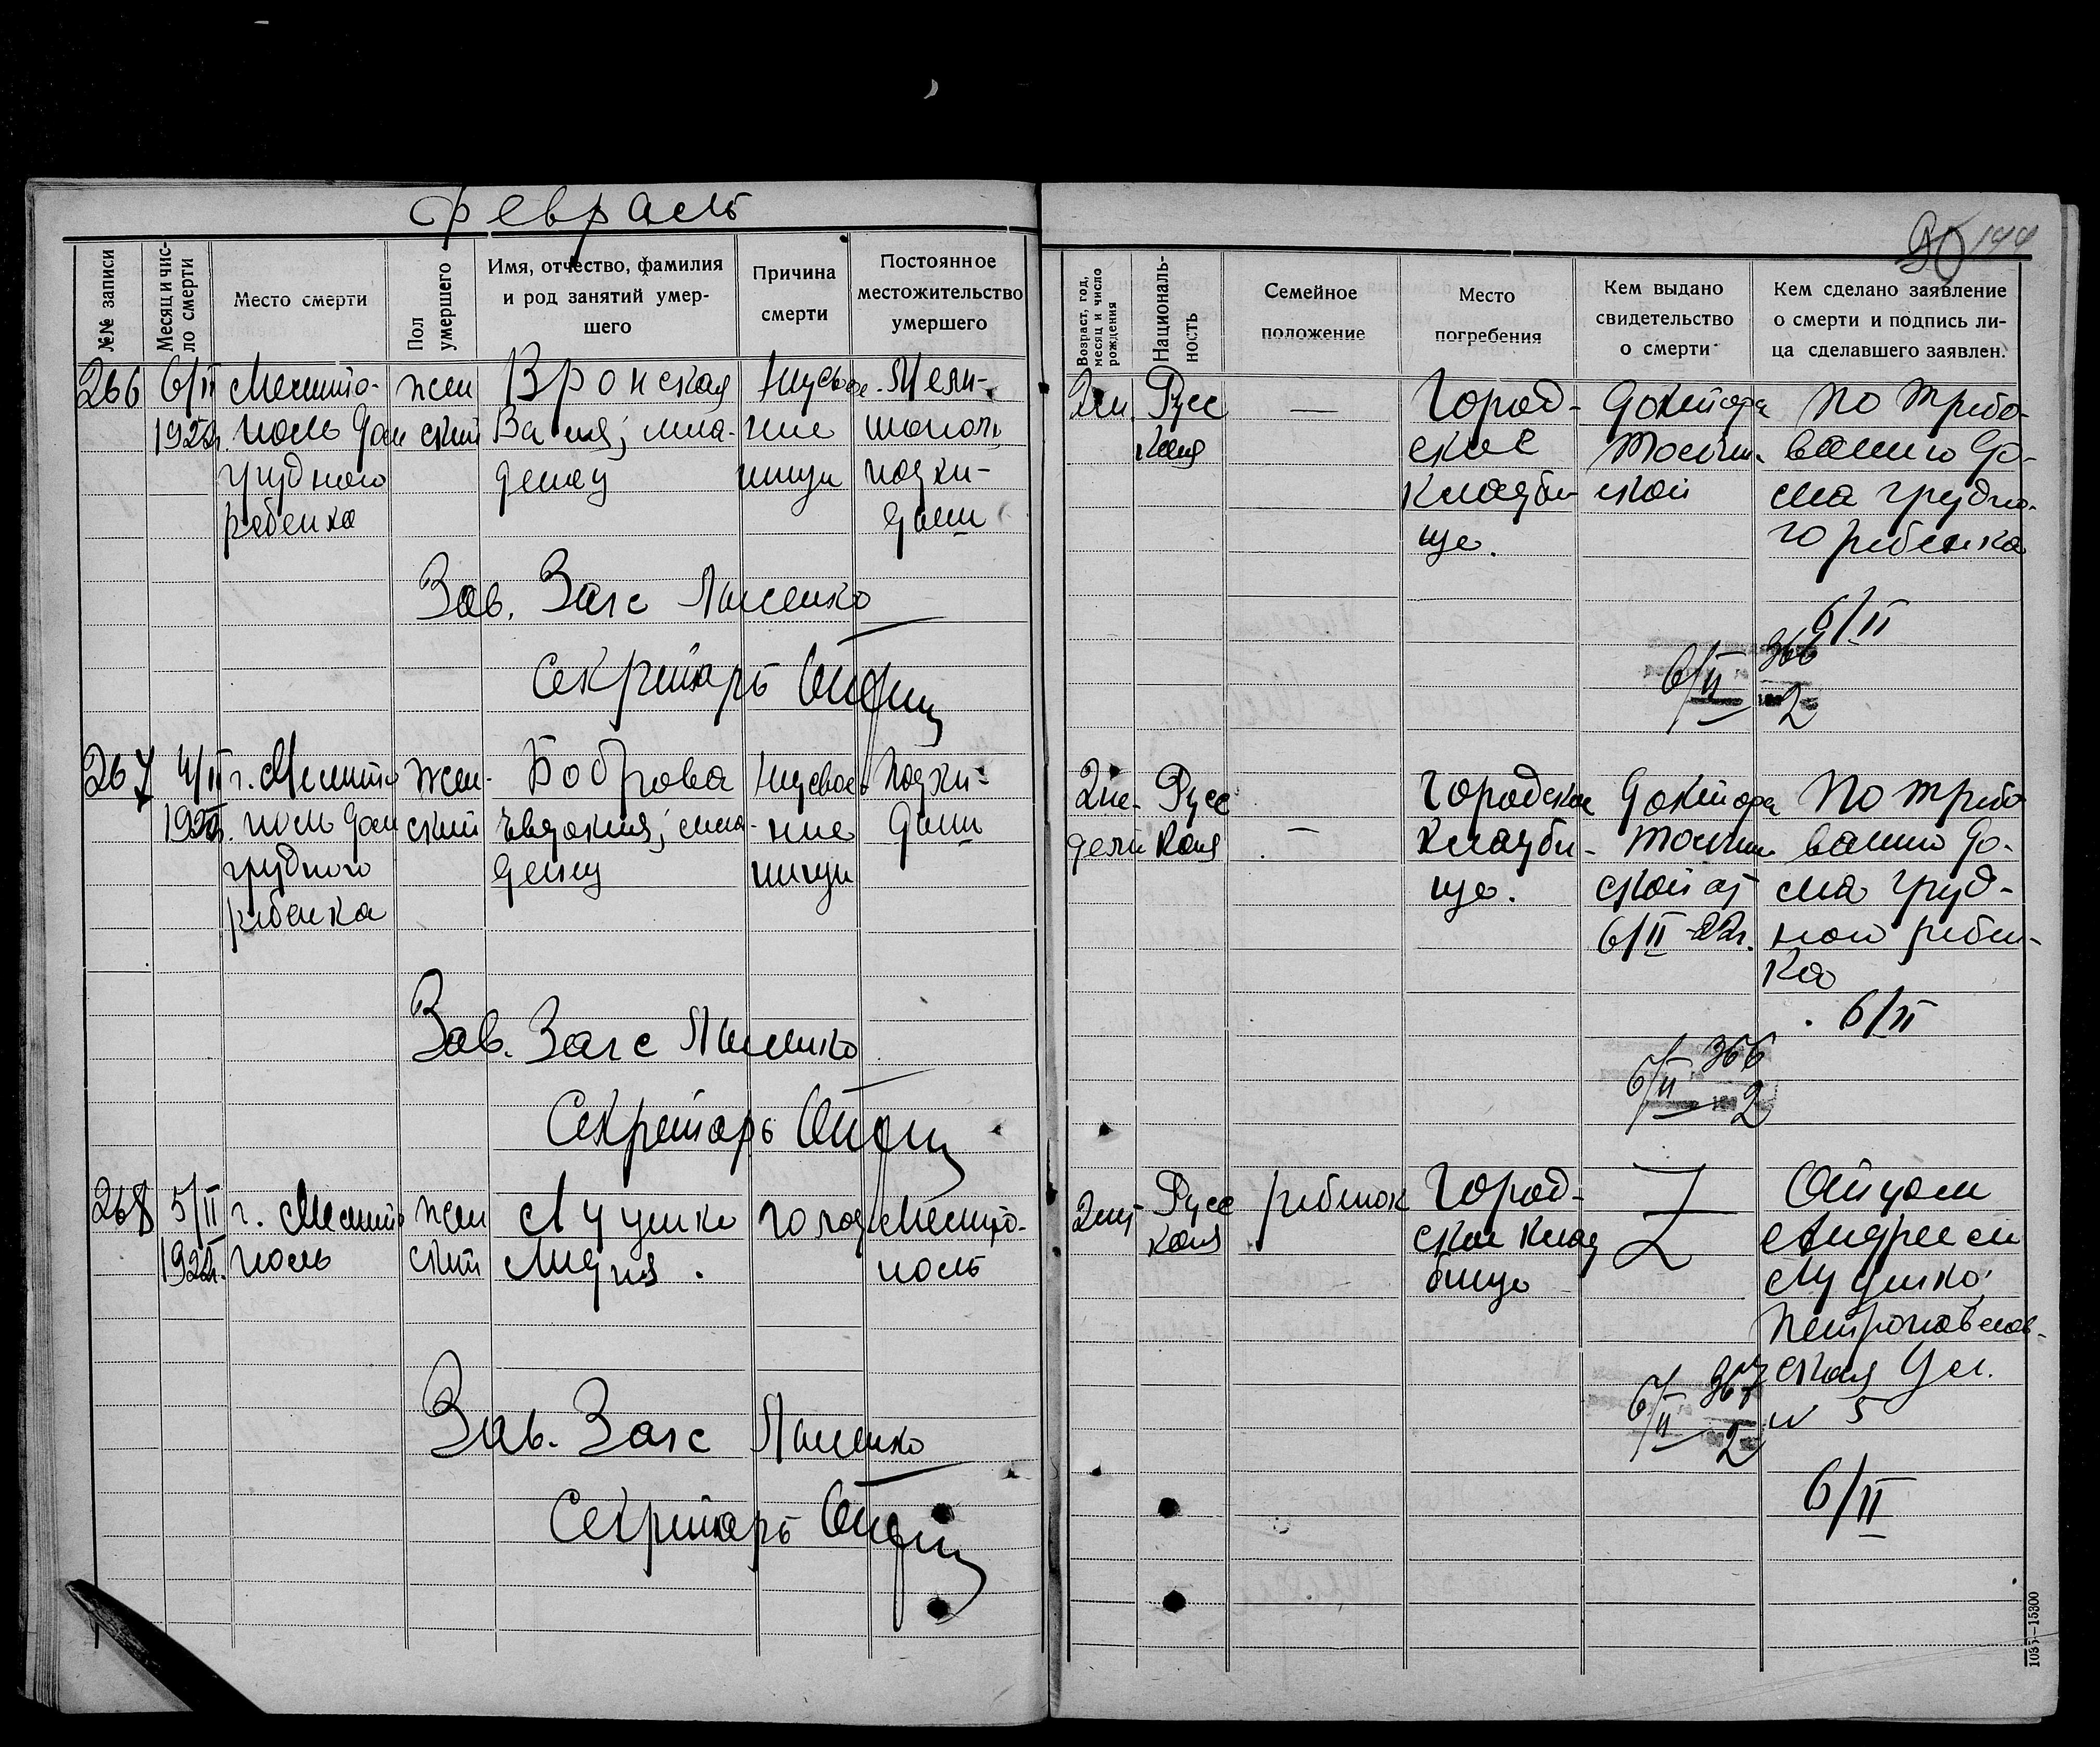 Февраль
50 144
№№ записи
Месяц и чис-
ло смерти
Место смерти
Пол
умершего
Имя, отчество, фамилия
и род занятий умер-
шего
Причина
смерти
Постоянное
местожительство
умершего
Возраст, год,
месяц и число
рождения
Националь-
ность
Семейное
положение
Место
погребения
Кем выдано
свидетельство
о смерти
Кем сделано заявление
о смерти и подпись ли-
ца сделавшего заявлен.
266
6/II
1922г.
Мелито-
поль Дом
грудного
ребенка
жен
ский
Вронская
Валя; мла-
денец
Неусвое-
ние
пищи
Мели-
тополь
подки-
дыш
2 м.
Русс
кая
—
Город-
ское
кладби-
ще.
Доктора
ской
По требо-
ванию До-
ма грудно-
го ребенка
6/II
Зав. Загс
Секретарь
6/II 366
2
267
4/II
1922г.
г. Мелито
поль Дом
грудного
ребенка
жен-
ский
Боброва
Евдокия; мла-
денец
Неусвое-
ние
пищи
Подки-
дыш
2 не-
дели
Русс
кая
—
Городское
кладби-
ще.
Доктора
ской от
6/II-22г.
По требо
ванию До-
ма груд-
ного ребен-
ка
6/II
Зав. Загс
Секретарь
6/II 366
2
268
5/II
1922г.
г. Мелито
поль
жен
ский
Луценко
Лидия.
голод
Мелито-
поль
Русс
кая
ребенок
Город-
ское клад
бище
Отцом
Андреем
Луценко;
Петропавлов-
ская ул.
№ 5
6/II
Зав. Загс
Секретарь
6/II 367
2
1035—15300